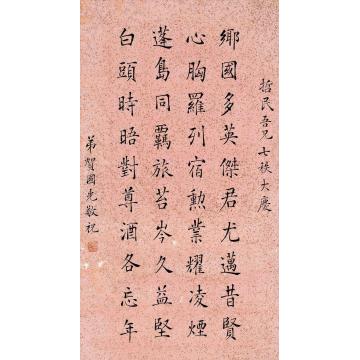 哲民吾兄七秩大慶
鄉國多英傑君尤邁昔賢
心胸羅列宿勲業耀凌煙
蓬島同覊旅苔岑久益堅
白頭時晤對尊酒各忘年
弟賀國光敬祝